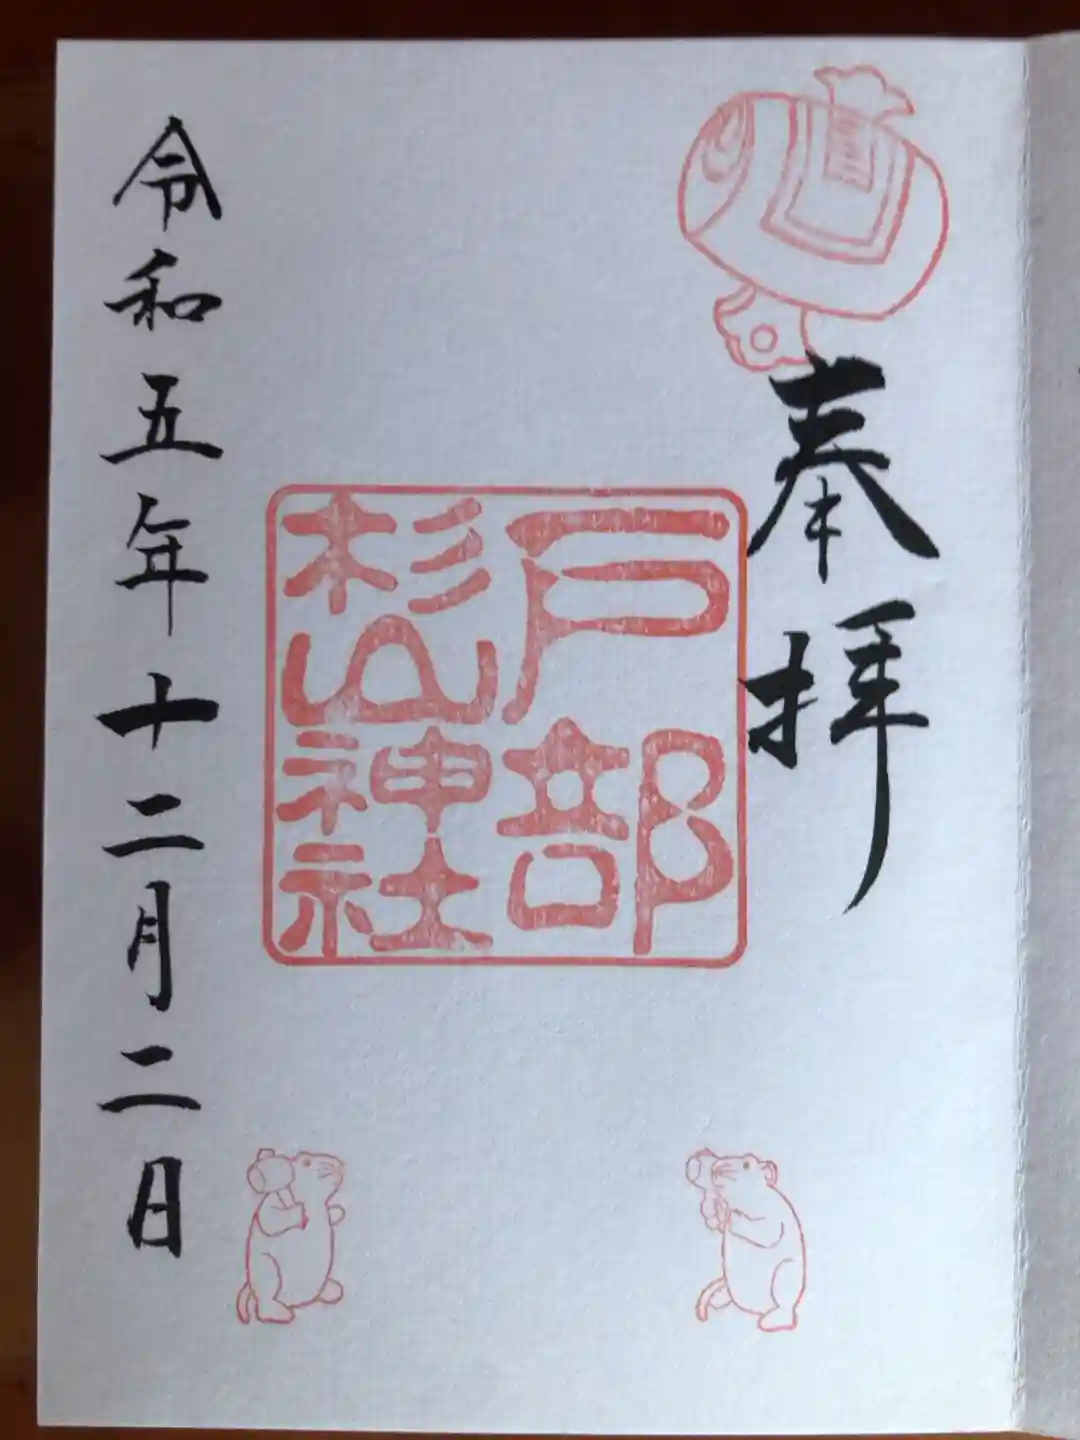 奉拝
戸部
杉山神社
令和五年十二月二日